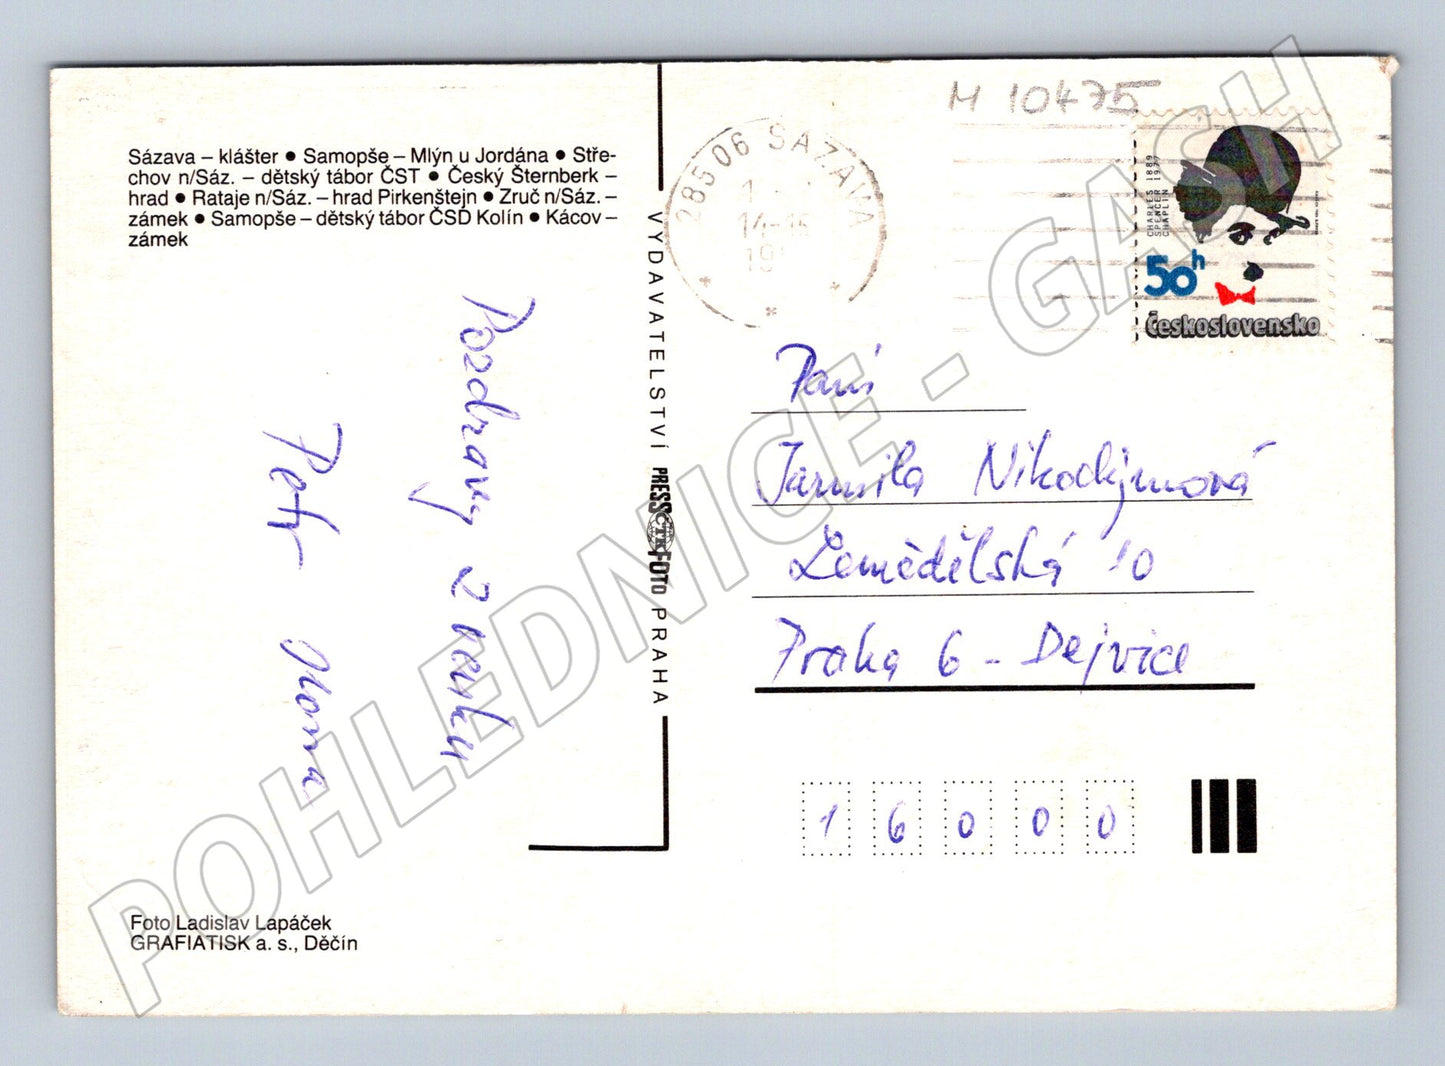 Sázava – klášter ● Samopše – Mlýn u Jordána ● Stře-
chov n/Sáz. – dětský tábor ČST ● Český Šternberk –
hrad ● Rataje n/Sáz. – hrad Pirkenštejn ● Zruč n/Sáz. –
zámek ● Samopše – dětský tábor ČSD Kolín ● Kácov –
zámek
Pozdravy z
Petr
Foto Ladislav Lapáček
GRAFIATISK a. s., Děčín
VYDAVATELSTVÍ PRESSFOTO PRAHA
ČTK
M 10475
285 06 SÁZAVA
14-15
CHARLES 1889
SPENCER 1977
CHAPLIN
50h
Československo
Paní
Jarmila Nikodýmová
Zemědělská 10
Praha 6 - Dejvice
16000
POHLEDNICE - GASH